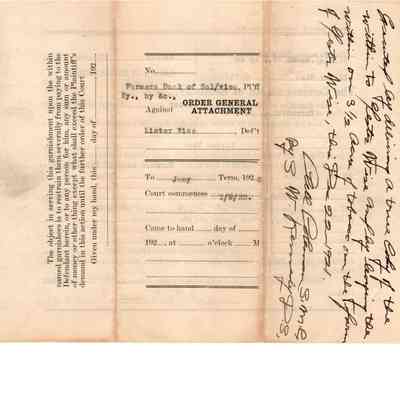 The object in serving this garnishment upon the within
named garnishees is to restrain them severally from paying to the
Defendant herein, or to any person for him, any sum or amount
of money or other thing except what shall exceed the Plaintiff's
demand in this action until the further order of this Court
Given under my hand, this day of 192
No.
Farmers Bank of
Ky., by &c.,
Against ORDER GENERAL ATTACHMENT
Lister Wise Def't
To Jany Term, 192
Court commences
Came to hand day of
192 at o'clock M
Executed by delivering a true Copy of the
within to Wise and by the
within on 3 1/2 Acres of tobacco on the farm
of Wise, this June 22 1921
S.M.C.
by S W Kennedy D S